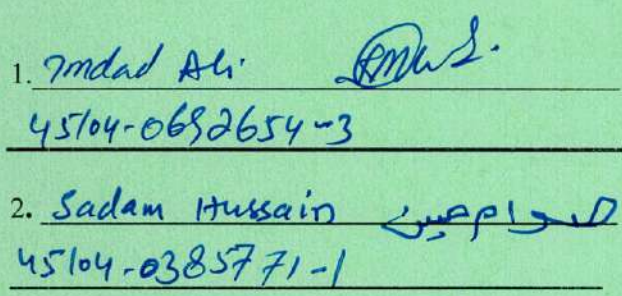 1. Imdad Ali
45104-0692654-3
2. Sadam Hussain صدام حسین
45104-0385771-1